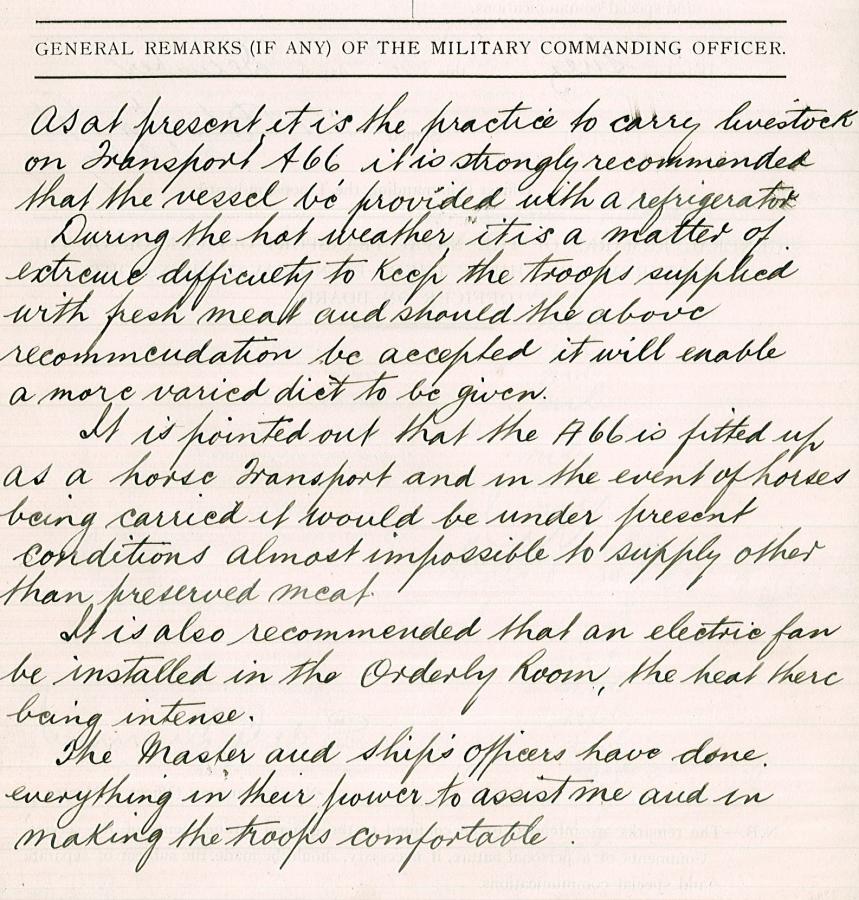 GENERAL REMARKS (IF ANY) OF THE MILITARY COMMANDING OFFICER.
As at present it is the practice to carry livestock
on Transport A66 it is strongly recommended
that the vessel be provided with a refrigerator
During the hot weather it is a matter of
extreme difficulty to keep the troops supplied
with fresh meat and should the above
recommendation be accepted it will enable
a more varied diet to be given.
It is pointed out that the A66 is fitted up
as a horse Transport and in the event of horses
being carried it would be under present
conditions almost impossible to supply other
than preserved meat
It is also recommended that an electric fan
be installed in the Orderly Room, the heat there
being intense.
The Master and ship's officers have done
everything in their power to assist me and in
making the troops comfortable.